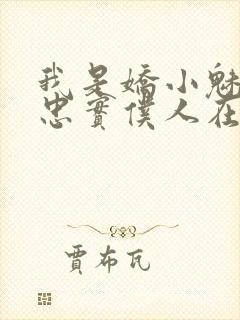 我是嬌小魅
忠實僕人在
賈布瓦